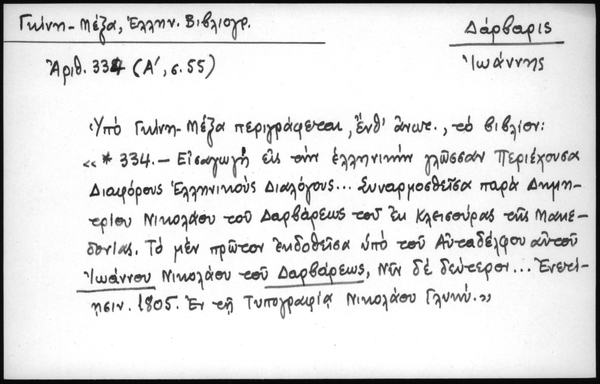 Γκίνη-Μέξα, Ἑλλην. Βιβλιογρ.
Δάρβαρις
Ἀριθ. 334 (Α΄, σ. 55)
Ἰωάννης
Ὑπὸ Γκίνη-Μέξα περιγράφεται, ἔνθ' ἀνωτ., τὸ βιβλίον:
«* 334.— Εἰσαγωγὴ εἰς τὴν ἑλληνικὴν γλῶσσαν Περιέχουσα
Διαφόρους Ἑλληνικοὺς Διαλόγους... Συναρμοσθεῖσα παρὰ Δημη-
τρίου Νικολάου τοῦ Δαρβάρεως τοῦ ἐκ Κλεισούρας τῆς Μακε-
δονίας. Τὸ μὲν πρῶτον ἐκδοθεῖσα ὑπὸ τοῦ Αὐταδέλφου αὐτοῦ
Ἰωάννου Νικολάου τοῦ Δαρβάρεως, Νῦν δὲ δεύτερον... Ἐνετί-
ησιν. 1805. Ἐν τῇ Τυπογραφίᾳ Νικολάου Γλυκύ.»